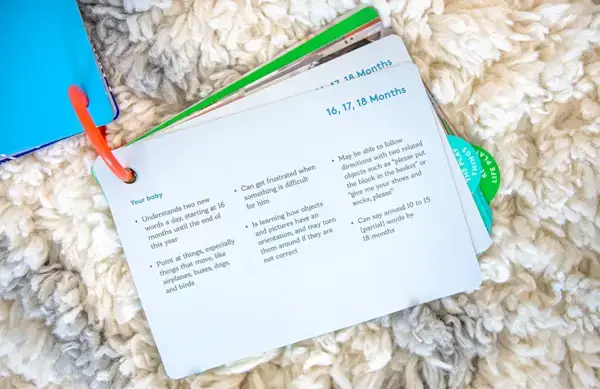 17, 18 Months
16, 17, 18 Months
Your baby
• Understands two new
words a day, starting at 16
months until the end of
this year
• Point at things, especially
things that move, like
airplanes, buses, dogs,
and birds
• Can get frustrated when
something is difficult
for him
• Is learning how objects
and pictures have an
orientation, and may turn
them around if they are
not correct
• May be able to follow
directions with two related
objects such as "please put
the block in the basket" or
"give me your shoes and
socks, please"
• Can say around 10 to 15
(partial) words by
18 months
THE PLAY
THINGS
LIFE PLAY